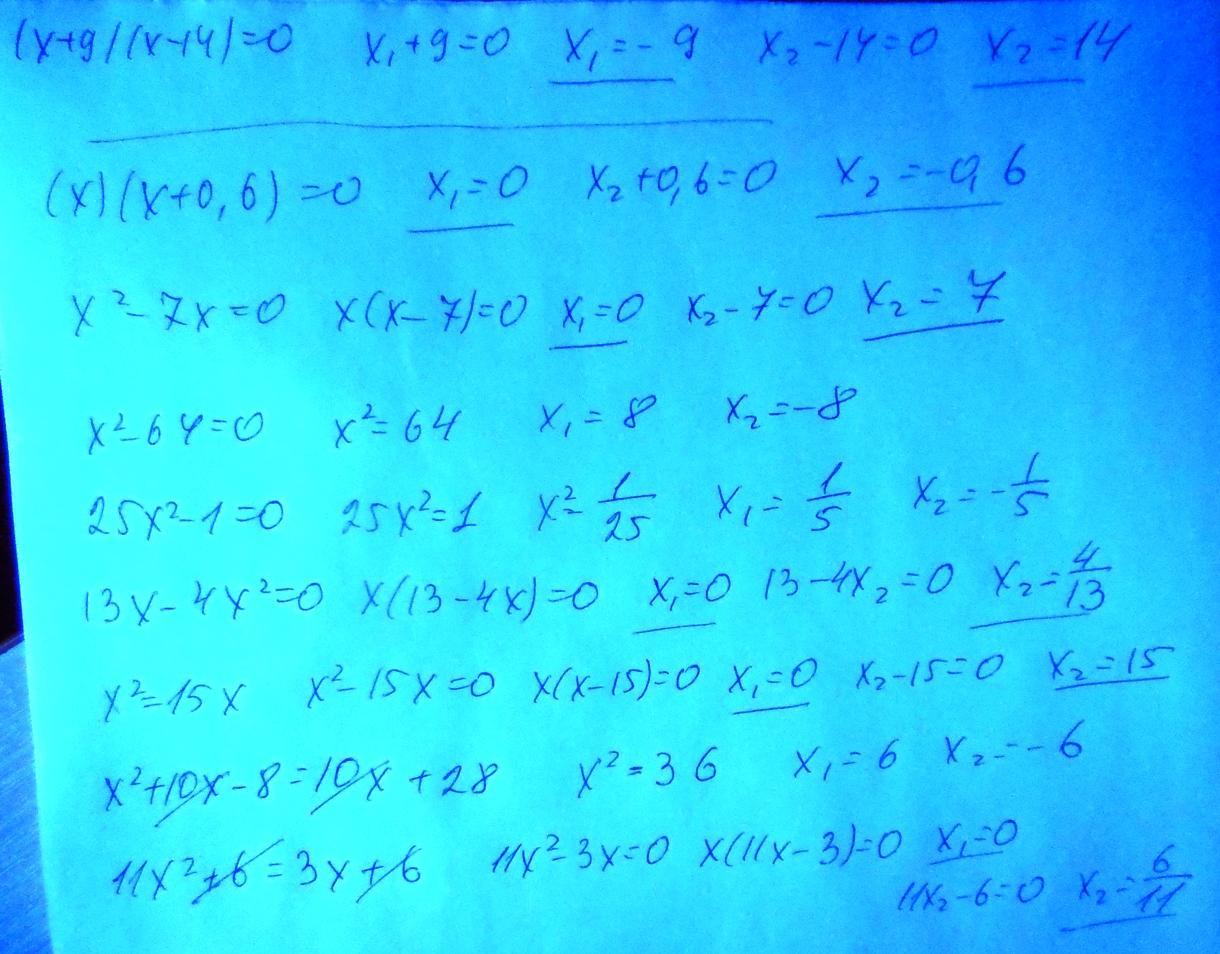 (x+9)(x-14)=0 x₁+9=0 x₁=-9 x₂-14=0 x₂=14
(x)(x+0,6)=0 x₁=0 x₂+0,6=0 x₂=-0,6
x²-7x=0 x(x-7)=0 x₁=0 x₂-7=0 x₂=7
x²-64=0 x²=64 x₁=8 x₂=-8
25x²-1=0 25x²=1 x²=1/25 x₁=1/5 x₂=-1/5
13x-4x²=0 x(13-4x)=0 x₁=0 13-4x₂=0 x₂=4/13
x²=15x x²-15x=0 x(x-15)=0 x₁=0 x₂-15=0 x₂=15
x²+10x-8=10x+28 x²=36 x₁=6 x₂=-6
11x²+6=3x+6 11x²-3x=0 x(11x-3)=0 x₁=0
11x₂-6=0 x₂=6/11